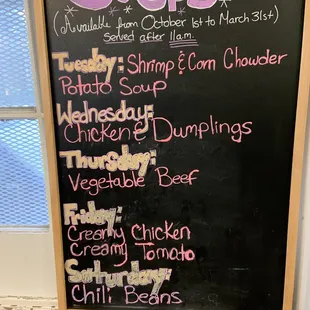 (Available from October 1st to March 31st)
Served after 11am.
Tuesday: Shrimp & Corn Chowder
Potato Soup
Wednesday:
Chicken & Dumplings
Thursday:
Vegetable Beef
Friday:
Creamy Chicken
Creamy Tomato
Saturday:
Chili Beans